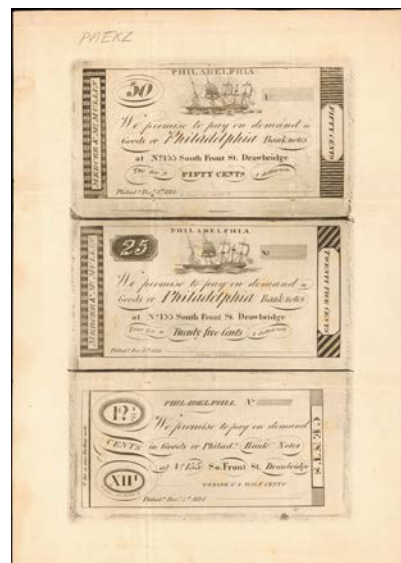 PAEXZ
PHILADELPHIA
50
We promise to pay on demand in
Goods or Philadelphia Bank notes
at No. 155 South Front St. Drawbridge
FIFTY CENTS
MERCER & McMULLIN
FIFTY CENTS
PHILADELPHIA
25
We promise to pay on demand in
Goods or Philadelphia Bank notes
at No. 155 South Front St. Drawbridge
Twenty five Cents
MERCER & McMULLIN
TWENTY FIVE CENTS
PHILADELPHIA No.
12½
We promise to pay on demand
CENTS in Goods or Philada. Bank Notes
at No. 155 So. Front St. Drawbridge
XII½
TWELVE & A HALF CENTS
CENTS